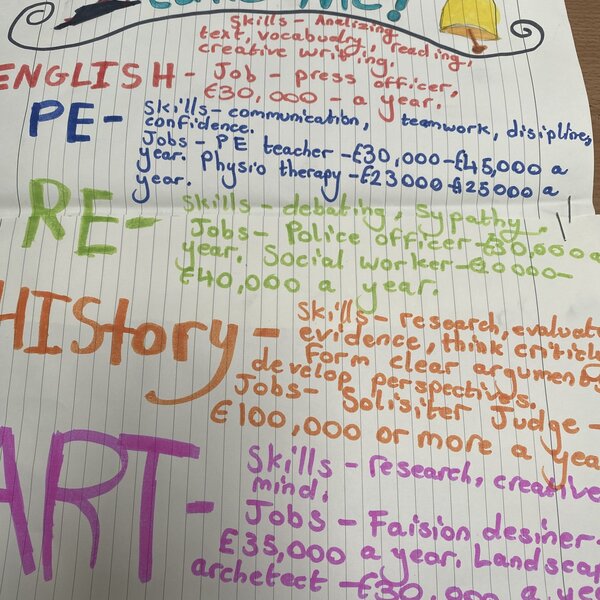 Me!
Skills - Analizing
text, vocabualry, reading,
creative writing.
ENGLISH - Job - press officer,
£30,000 - a year.
PE - Skills - communication, teamwork, disipline,
confidence.
Jobs - PE teacher - £30,000 - £45,000 a
year. Physio therapy - £23000 - £25000 a
year.
RE - Skills - debating, Sypathy
Jobs - Police officer - £30,000 a
year. Social worker - £20000 -
£40,000 a year.
HIStory - Skills - research, evaluate
evidence, think critic
Form clear argument
develop perspectives.
Jobs - Solisiter Judge -
£100,000 or more a yea
ART - Skills - research, creative
mind.
Jobs - Faision desiner -
£35,000 a year. Landscap
archetect - £30,000 a yea